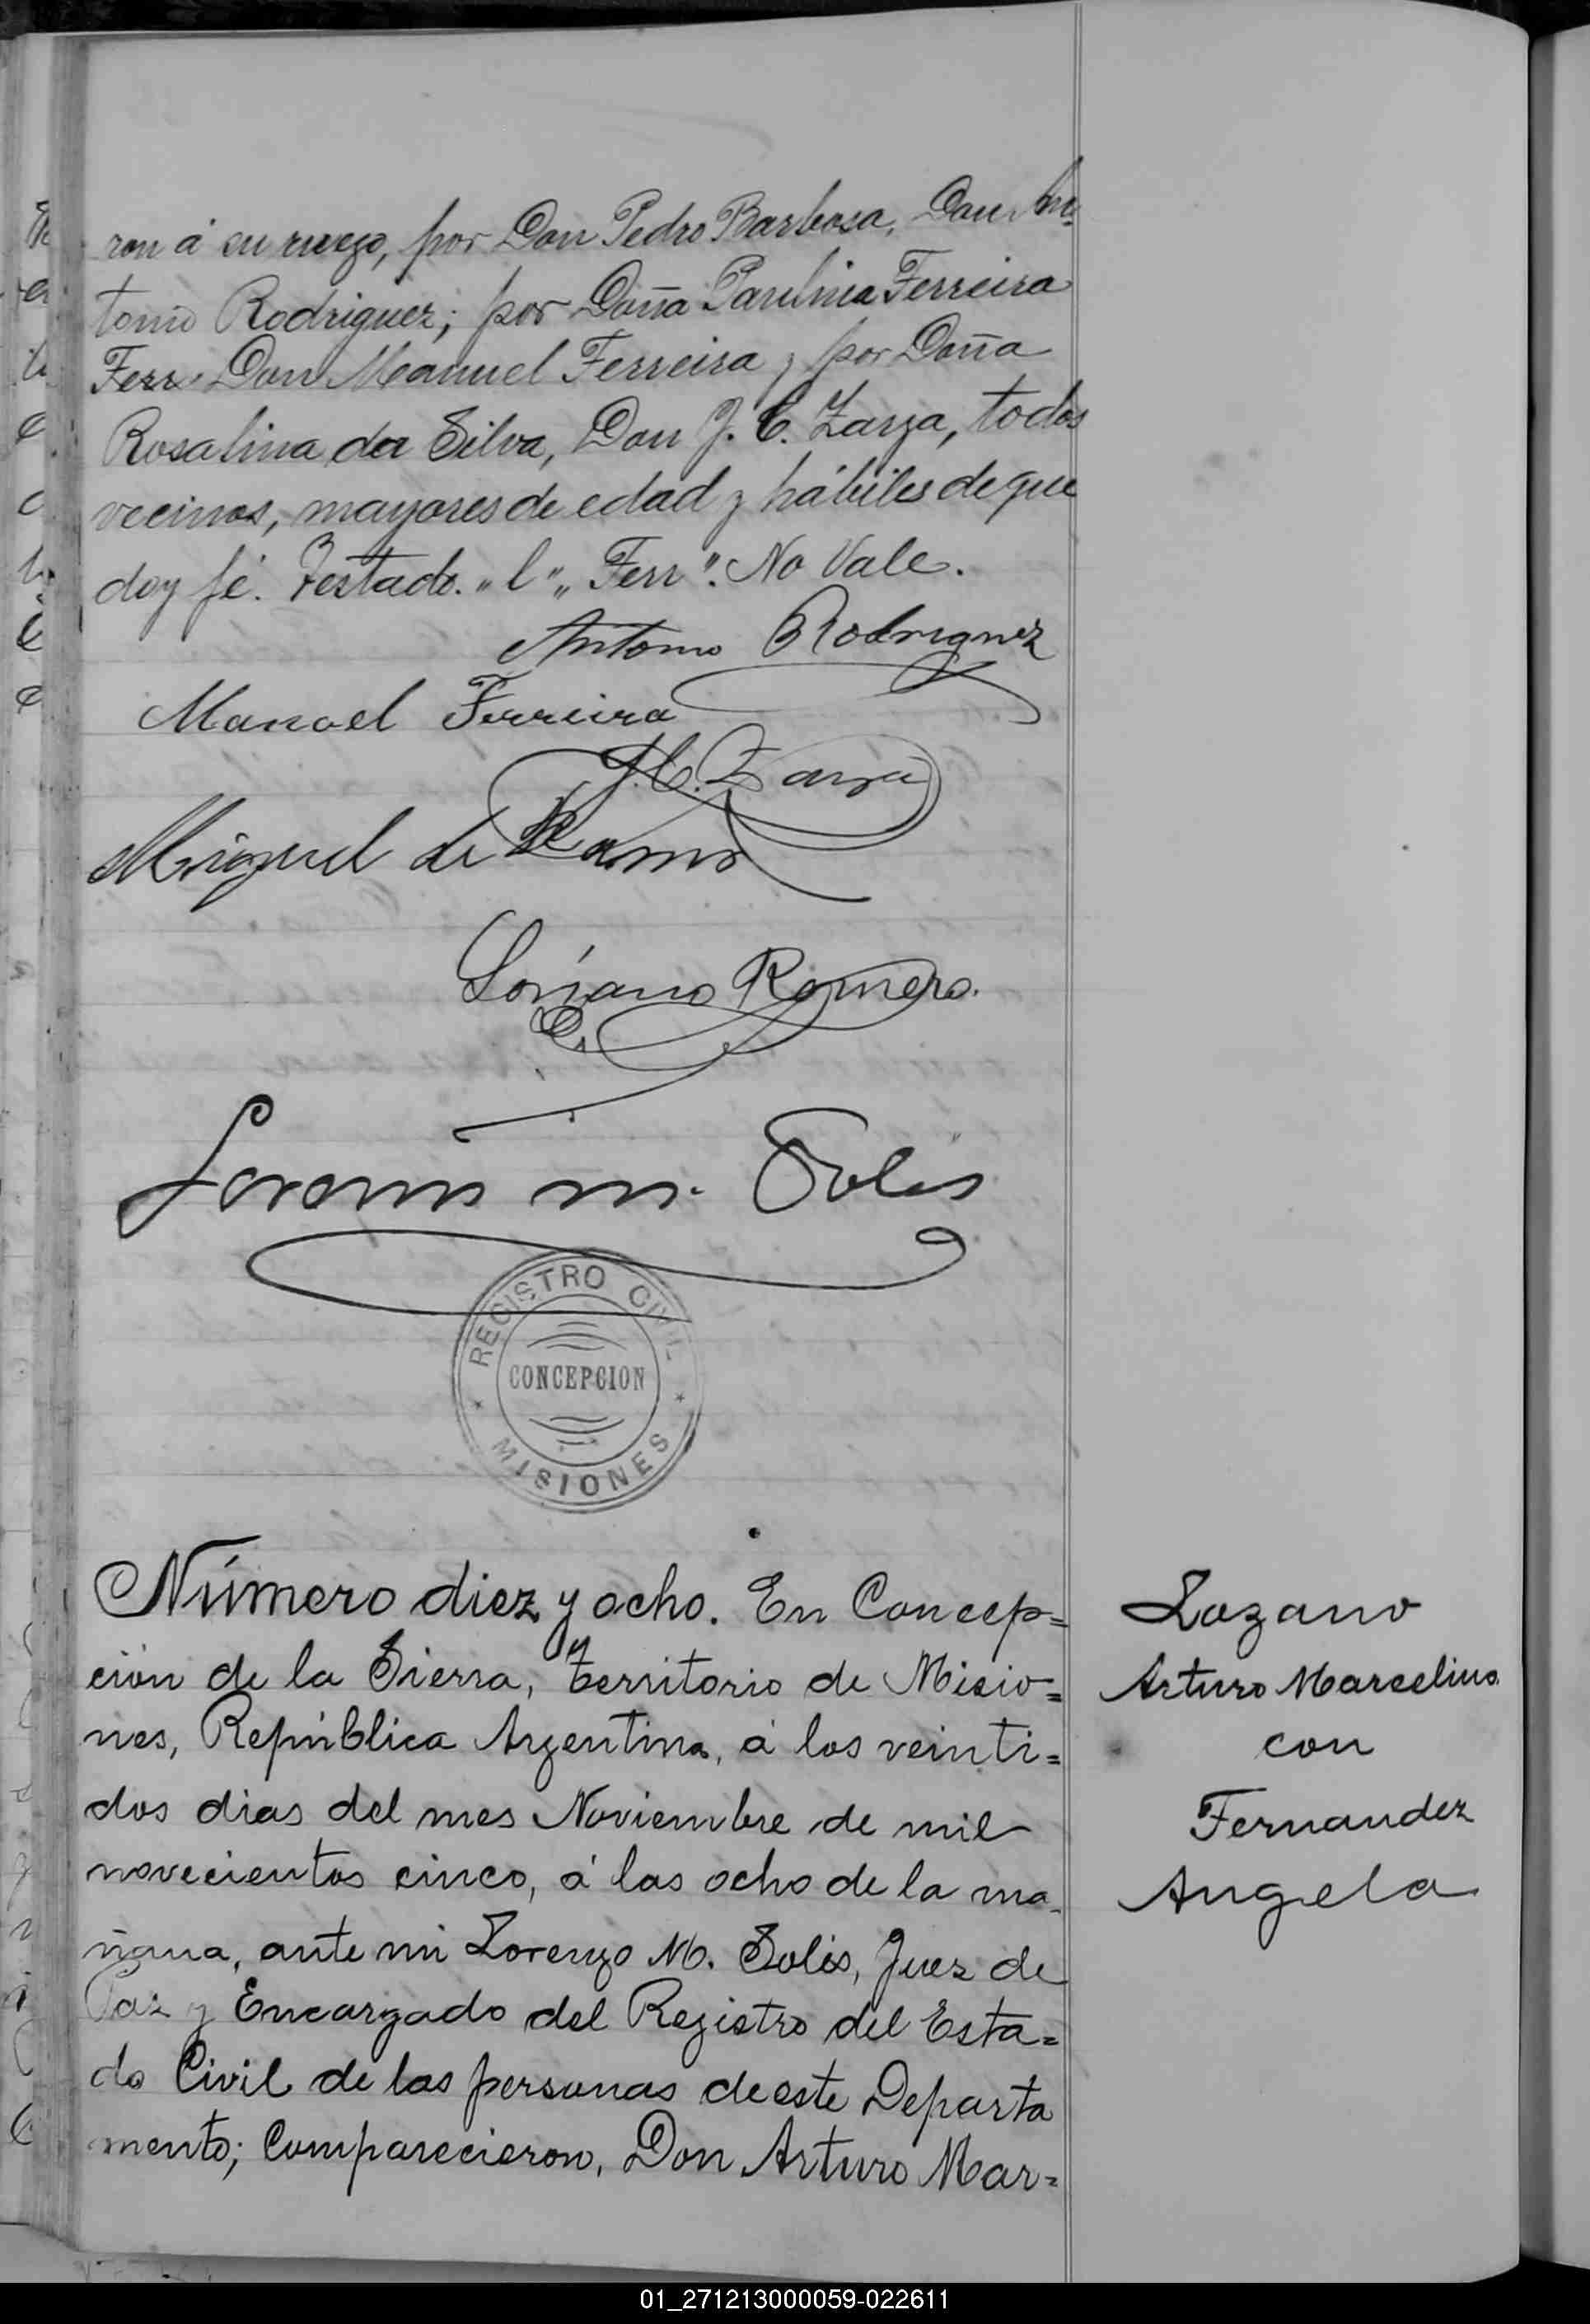 ron á su ruego, por Don Pedro Barbosa, Don An-
tonio Rodriguez; por Doña Paulina Ferreira
Ferr Don Manuel Ferreira y por Doña
Rosalina da Silva, Don J. C. Zarza, todos
vecinos, mayores de edad y hábiles de que
doy fé. Testado. "l" "Ferr". No Vale.
Antonio Rodriguez
Manoel Ferreira
J. C. Zarza
Miguel de Ramos
Soriano Romero.
Lorenzo M. Solis
REGISTRO CIVIL
CONCEPCION
MISIONES
Número diez y ocho. En Concep=
ción de la Sierra, Territorio de Misio=
nes, República Argentina, á los veinti=
dos dias del mes Noviembre de mil
novecientos cinco, á las ocho de la ma-
ñana, ante mi Lorenzo M. Solis, Juez de
Paz y Encargado del Registro del Esta=
do Civil de las personas de este Departa
mento; Comparecieron, Don Arturo Mar=
Lozano
Arturo Marcelino
con
Fernandez
Angela
01_271213000059-022611